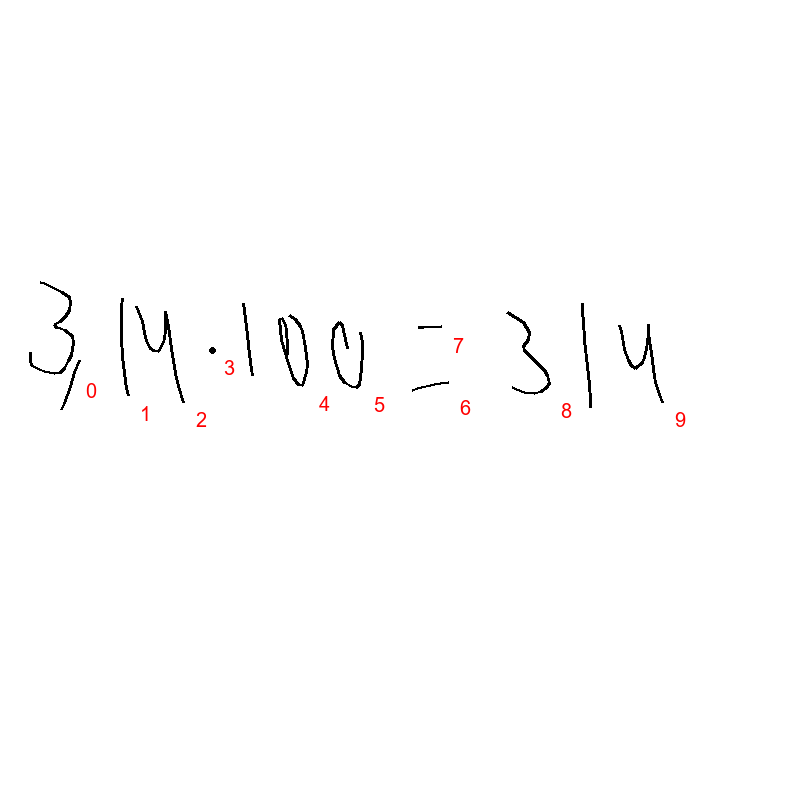 3,14 · 100 = 314
0 1 2 3 4 5 6 7 8 9